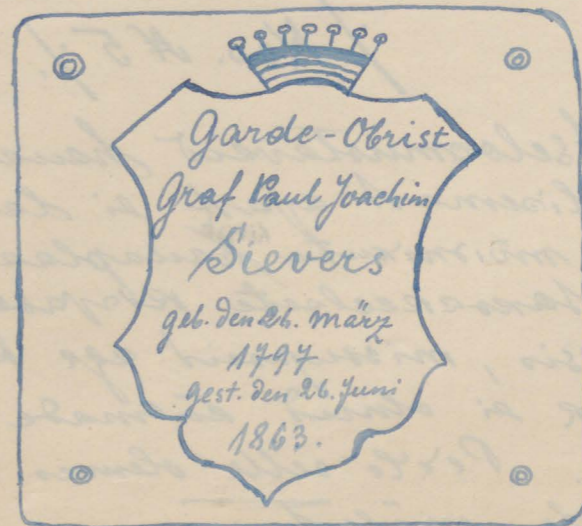 Garde-Obrist
Graf Paul Joachim
Sievers
geb. den 26. märz
1797
gest. den 26. Juni
1863.